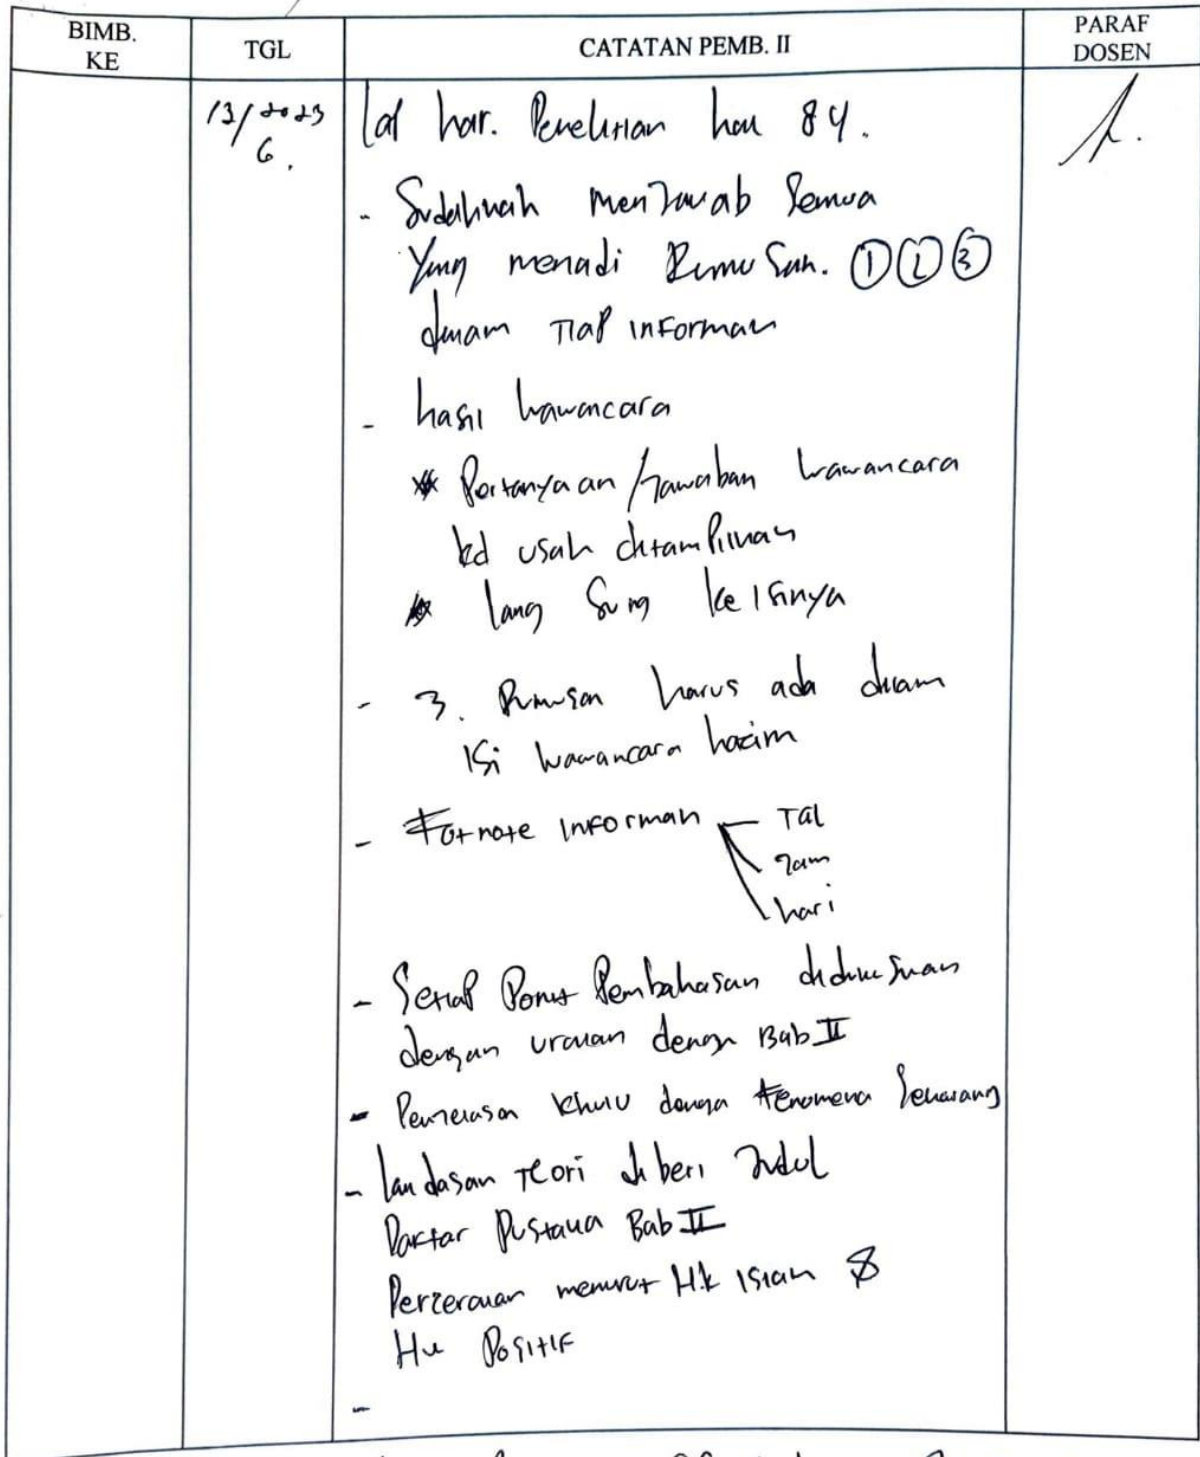 BIMB. KE
TGL
CATATAN PEMB. II
PARAF DOSEN
13/2023
6.
hal 84.
- Sudahkah menjawab semua
yang menadi Rumusan. ① ② ③
dalam Tiap informan
- hasil wawancara
* Pertanyaan/jawaban wawancara
kd usah ditampilkan
* langsung keisinya
- 3. Rumusan harus ada dalam
isi wawancara hakim
- Fotnote informan
Tgl
Jam
hari
- Setiap Point Pembahasan
dengan uraian dengan Bab II
- Penjelasan Khulu dengan fenomena sekarang
- landasan teori di beri Judul
Daftar Pustaka Bab II
Perceraian menurut Hk Islam &
Hk Positif
-